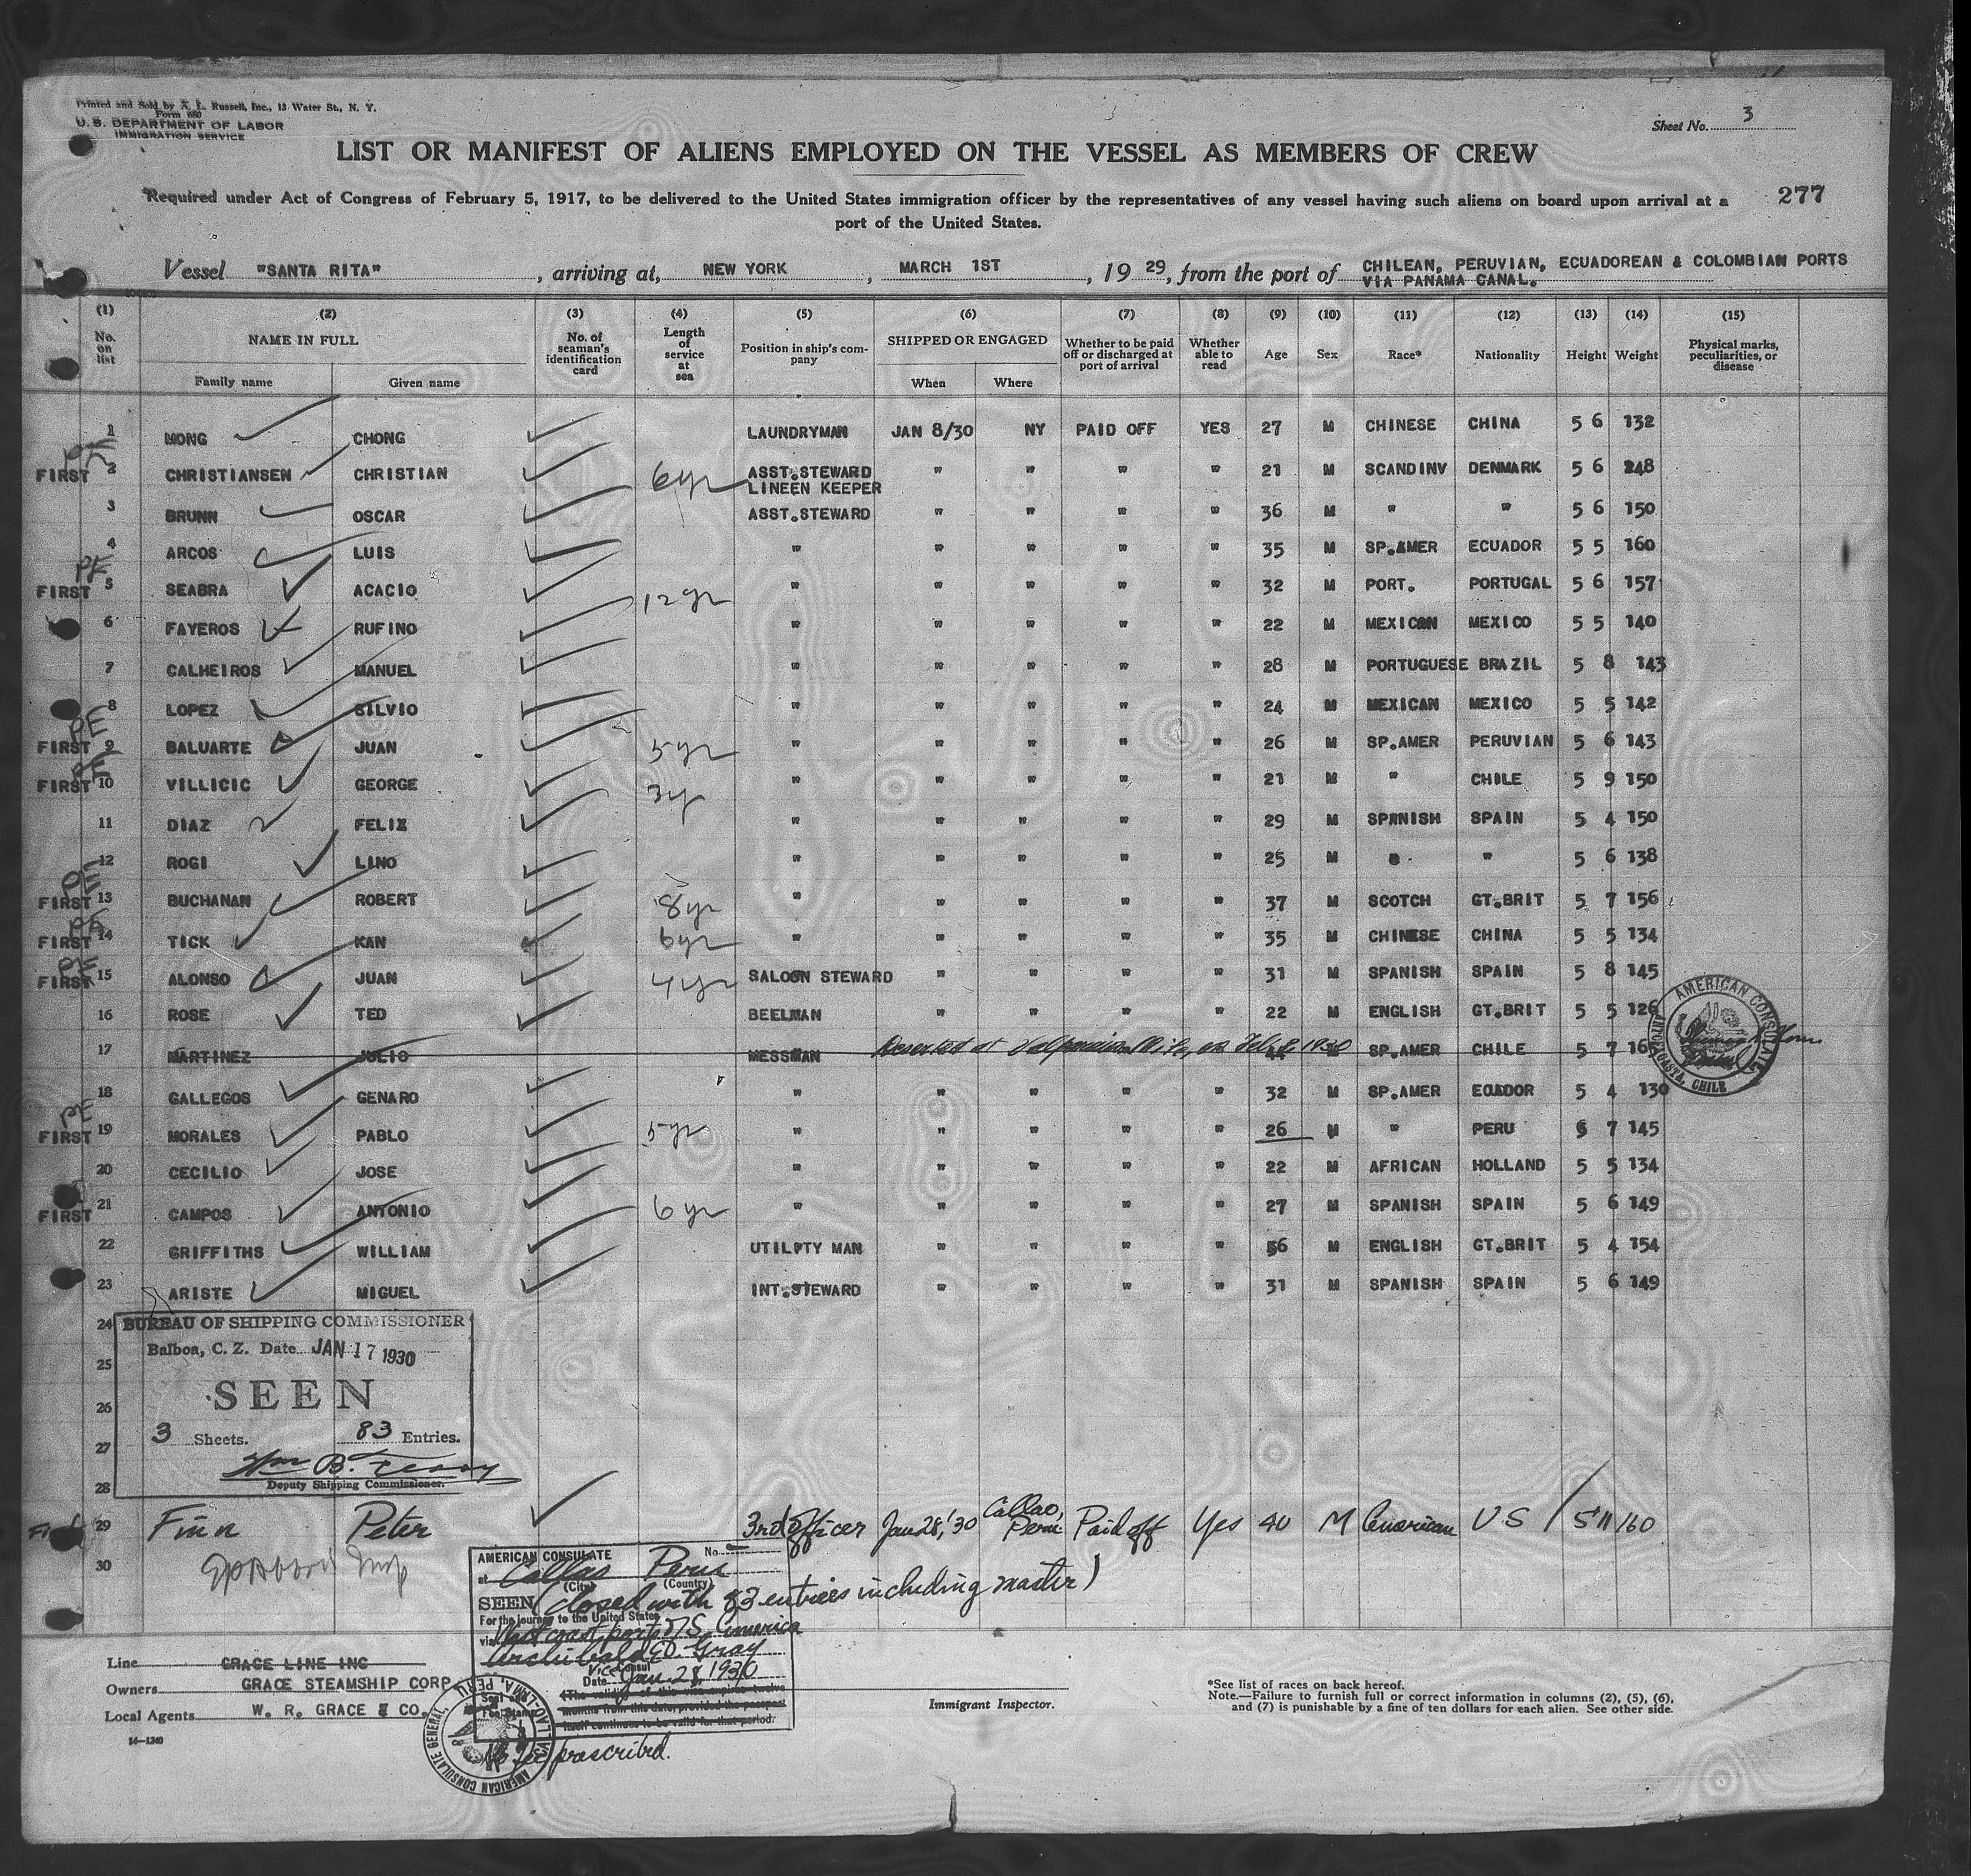 Printed and Sold by A. L. Russell, Inc., 13 Water St., N. Y.
Form 680
U. S. DEPARTMENT OF LABOR
IMMIGRATION SERVICE
Sheet No. 3
LIST OR MANIFEST OF ALIENS EMPLOYED ON THE VESSEL AS MEMBERS OF CREW
Required under Act of Congress of February 5, 1917, to be delivered to the United States immigration officer by the representatives of any vessel having such aliens on board upon arrival at a
port of the United States.
277
Vessel "SANTA RITA", arriving at, NEW YORK, MARCH 1ST, 19 29, from the port of CHILEAN, PERUVIAN, ECUADOREAN & COLOMBIAN PORTS
VIA PANAMA CANAL.
(1) (2) (3) (4) (5) (6) (7) (8) (9) (10) (11) (12) (13) (14) (15)
No. on list NAME IN FULL Family name Given name No. of seaman's identification card Length of service at sea Position in ship's company SHIPPED OR ENGAGED When Where Whether to be paid off or discharged at port of arrival Whether able to read Age Sex Race* Nationality Height Weight Physical marks, peculiarities, or disease
1 MONG CHONG LAUNDRYMAN JAN 8/30 NY PAID OFF YES 27 M CHINESE CHINA 5 6 132
PE FIRST 2 CHRISTIANSEN CHRISTIAN 6yr ASST.STEWARD LINEEN KEEPER " " " " 21 M SCANDINV DENMARK 5 6 248
3 BRUNN OSCAR ASST.STEWARD " " " " 36 M " " 5 6 150
4 ARCOS LUIS " " " " " 35 M SP.AMER ECUADOR 5 5 160
PE FIRST 5 SEABRA ACACIO 12yr " " " " " 32 M PORT. PORTUGAL 5 6 157
6 FAYEROS RUFINO " " " " " 22 M MEXICAN MEXICO 5 5 140
7 CALHEIROS MANUEL " " " " " 28 M PORTUGUESE BRAZIL 5 8 143
8 LOPEZ SILVIO " " " " " 24 M MEXICAN MEXICO 5 5 142
PE FIRST 9 BALUARTE JUAN 5yr " " " " " 26 M SP.AMER PERUVIAN 5 6 143
PE FIRST 10 VILLICIC GEORGE 3yr " " " " " 21 M " CHILE 5 9 150
11 DIAZ FELIX " " " " " 29 M SPANISH SPAIN 5 4 150
12 ROGI LINO " " " " " 25 M " " 5 6 138
PE FIRST 13 BUCHANAN ROBERT 8yr " " " " " 37 M SCOTCH GT.BRIT 5 7 156
PE FIRST 14 TICK KAN 6yr " " " " " 35 M CHINESE CHINA 5 5 134
PE FIRST 15 ALONSO JUAN 4yr SALOON STEWARD " " " " 31 M SPANISH SPAIN 5 8 145
16 ROSE TED BEELMAN " " " " 22 M ENGLISH GT.BRIT 5 5 126
17 MARTINEZ JULIO MESSMAN Deserted at Valparaiso, Chile, on Feb. 1930 SP.AMER CHILE 5 7
18 GALLEGOS GENARO " " " " " 32 M SP.AMER ECUADOR 5 4 130
PE FIRST 19 MORALES PABLO 5yr " " " " " 26 M " PERU 5 7 145
20 CECILIO JOSE " " " " " 22 M AFRICAN HOLLAND 5 5 134
FIRST 21 CAMPOS ANTONIO 6yr " " " " " 27 M SPANISH SPAIN 5 6 149
22 GRIFFITHS WILLIAM UTILPTY MAN " " " " 56 M ENGLISH GT.BRIT 5 4 154
23 ARISTE MIGUEL INT.STEWARD " " " " 31 M SPANISH SPAIN 5 6 149
AMERICAN CONSULATE, ANTOFAGASTA, CHILE
24
25
26
27
28
BUREAU OF SHIPPING COMMISSIONER
Balboa, C. Z. Date JAN 17 1930
SEEN
3 Sheets. 83 Entries.
Wm B.
Deputy Shipping Commissioner.
29 Finn Peter 3rd Officer Jan 28, '30 Callao, Peru Paid off Yes 40 M American US 5'11 160
30
AMERICAN CONSULATE No.
at Callao Peru
(City) (Country)
SEEN (closed with 83 entries including master)
For the journey to the United States
via West coast ports of S. America
Archibald E. Gray
Vice Consul
Date Jan. 28, 1930
(The validity of this visa expires twelve
months from this date, provided the passport
itself continues to be valid for that period.
No fee prescribed.
AMERICAN CONSULATE GENERAL, CALLAO-LIMA, PERU
Line GRACE LINE INC
Owners GRACE STEAMSHIP CORP
Local Agents W. R. GRACE & CO.
14—1240
Immigrant Inspector.
*See list of races on back hereof.
Note.—Failure to furnish full or correct information in columns (2), (5), (6),
and (7) is punishable by a fine of ten dollars for each alien. See other side.